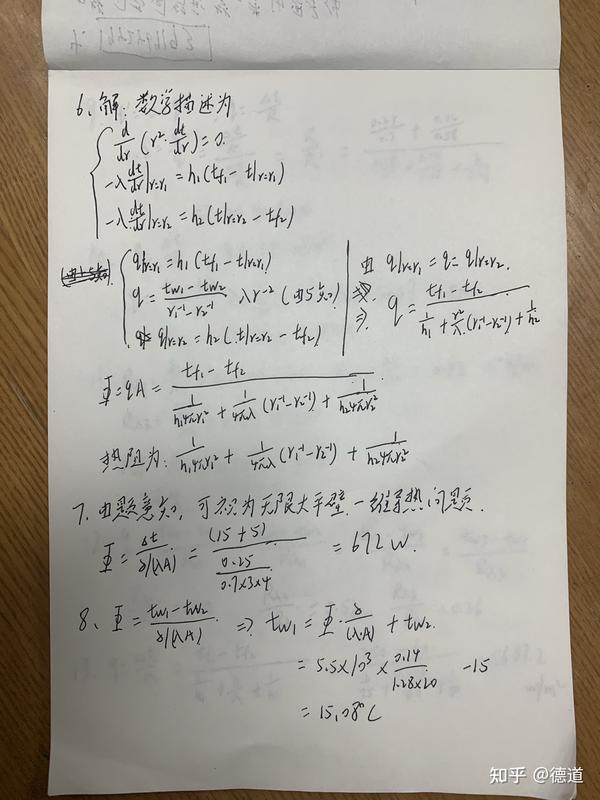 6、解：数学描述为
d/dr (r²·dt/dr)=0.
-λ dt/dr|r=r₁ = h₁(tf₁ - t|r=r₁)
-λ dt/dr|r=r₂ = h₂(t|r=r₂ - tf₂)
q|r=r₁ = h₁(tf₁ - t|r=r₁)
q = (tw₁ - tw₂)/(r₁⁻¹ - r₂⁻¹) λr⁻² (由5知)
q|r=r₂ = h₂(t|r=r₂ - tf₂)
由 q|r=r₁ = q = q|r=r₂.
⇒ q = (tf₁ - tf₂)/(1/h₁ + r²/λ (r₁⁻¹ - r₂⁻¹) + 1/h₂)
Φ = qA = (tf₁ - tf₂)/(1/(h₁4πr₁²) + 1/(4πλ) (r₁⁻¹ - r₂⁻¹) + 1/(h₂4πr₂²))
热阻为: 1/(h₁4πr₁²) + 1/(4πλ) (r₁⁻¹ - r₂⁻¹) + 1/(h₂4πr₂²)
7、由题意知，可视为无限大平壁一维导热问题.
Φ = Δt/(δ/(λA)) = (15+5)/(0.25/(0.7×3×4)) = 672 W.
8、Φ = (tw₁ - tw₂)/(δ/(λA)) ⇒ tw₁ = Φ·δ/(λ·A) + tw₂.
= 5.5×10³ × 0.14/(1.28×20) - 15
= 15.08℃
知乎 @德道